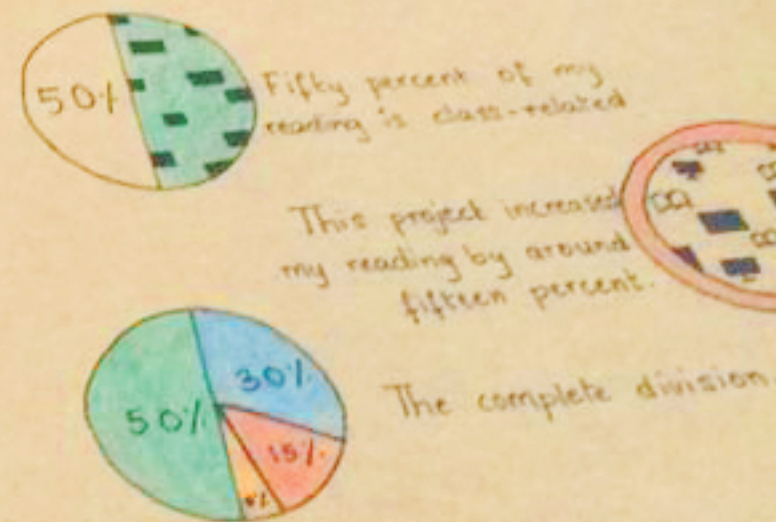 50%
Fifty percent of my
reading is class-related
This project increased
my reading by around
fifteen percent.
50%
30%
15%
The complete division